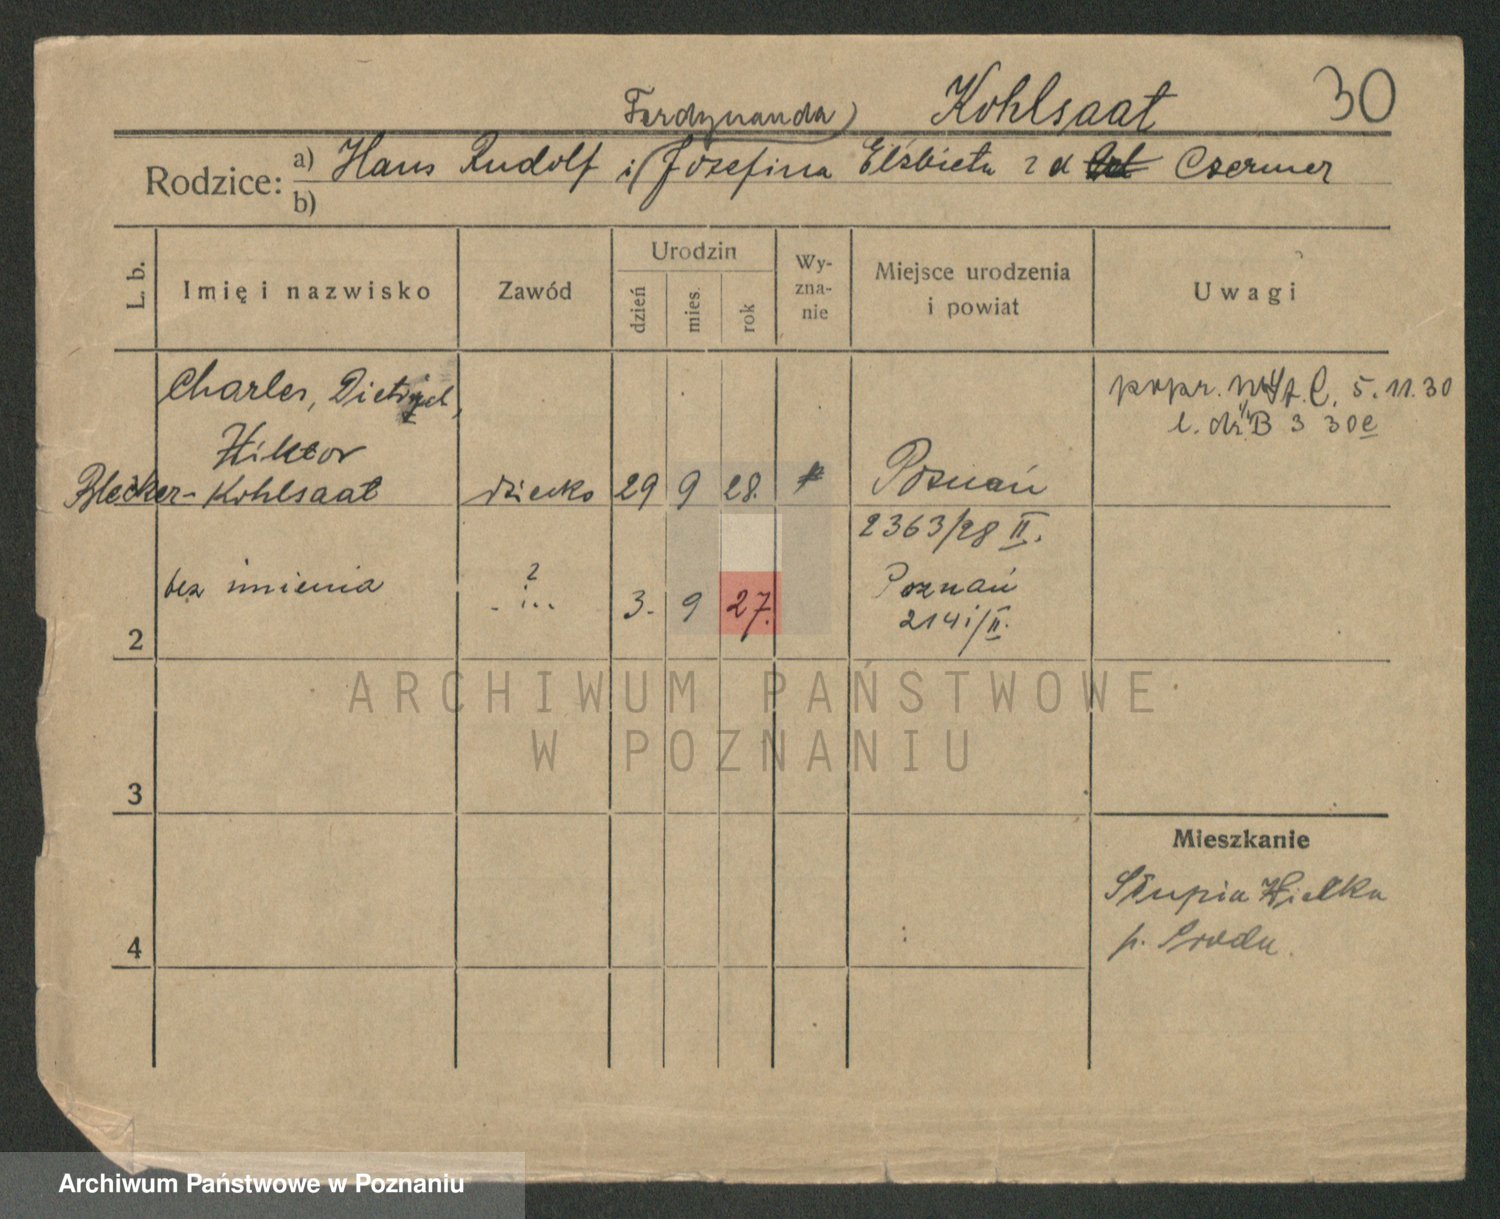 Kohlsaat 30
Ferdynanda)
Rodzice: a) Hans Rudolf i (Józefina Elżbieta z d Czermer
b)
L. b. Imię i nazwisko Zawód Urodzin dzień mies. rok Wy-zna-nie Miejsce urodzenia i powiat Uwagi
Charles, popr. 5.11.30
Wiktor l. dz. B 3 30
Blecker-Kohlsaat dziecko 29 9 28. Poznań
2363/28 II.
bez imienia ? 3. 9 27. Poznań
2 2141/II.
ARCHIWUM PAŃSTWOWE
W POZNANIU
3
Mieszkanie
Słupia Wielka
4 p. Środa.
Archiwum Państwowe w Poznaniu